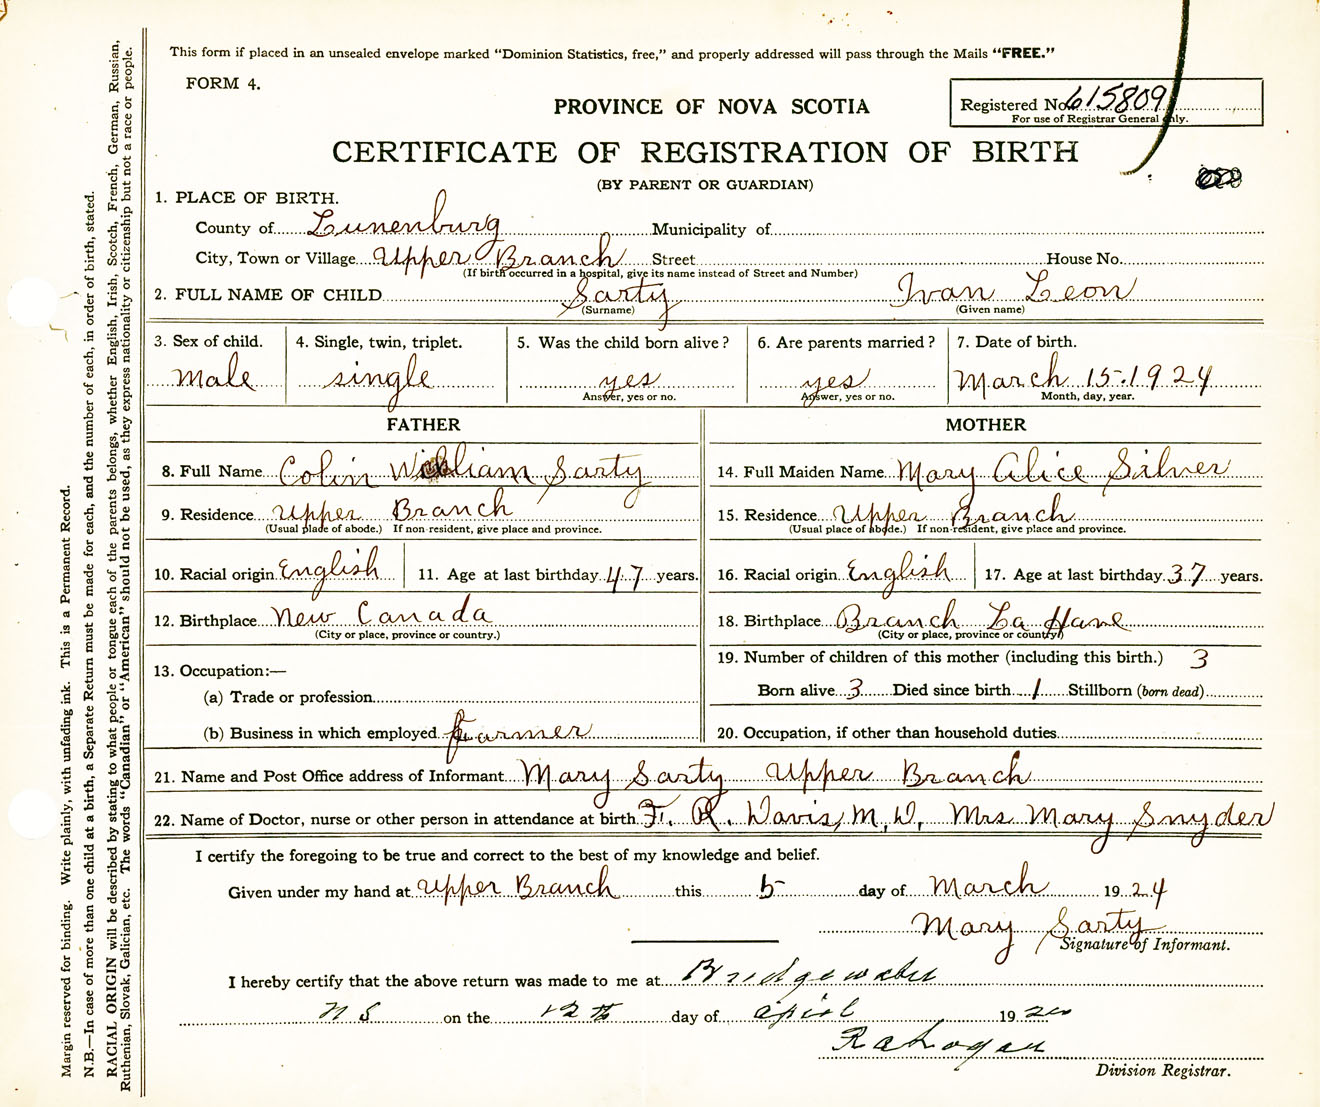 This form if placed in an unsealed envelope marked "Dominion Statistics, free," and properly addressed will pass through the Mails "FREE."
FORM 4.
PROVINCE OF NOVA SCOTIA
Registered No. 615809
For use of Registrar General only.
CERTIFICATE OF REGISTRATION OF BIRTH
(BY PARENT OR GUARDIAN)
1. PLACE OF BIRTH.
County of Lunenburg Municipality of
City, Town or Village Upper Branch Street House No.
(If birth occurred in a hospital, give its name instead of Street and Number)
2. FULL NAME OF CHILD Sarty Ivan Leon
(Surname) (Given name)
3. Sex of child. 4. Single, twin, triplet. 5. Was the child born alive? 6. Are parents married? 7. Date of birth.
Male single yes yes March 15. 1924
Answer, yes or no. Answer, yes or no. Month, day, year.
FATHER MOTHER
8. Full Name Colin William Sarty 14. Full Maiden Name Mary Alice Silver
9. Residence Upper Branch 15. Residence Upper Branch
(Usual place of abode.) If non-resident, give place and province. (Usual place of abode.) If non-resident, give place and province.
10. Racial origin English 11. Age at last birthday 47 years. 16. Racial origin English 17. Age at last birthday 37 years.
12. Birthplace New Canada 18. Birthplace Branch La Have
(City or place, province or country.) (City or place, province or country)
13. Occupation:— 19. Number of children of this mother (including this birth.) 3
(a) Trade or profession Born alive 3 Died since birth 1 Stillborn (born dead)
(b) Business in which employed Farmer 20. Occupation, if other than household duties
21. Name and Post Office address of Informant Mary Sarty Upper Branch
22. Name of Doctor, nurse or other person in attendance at birth F. R. Davis, M.D. Mrs Mary Snyder
I certify the foregoing to be true and correct to the best of my knowledge and belief.
Given under my hand at Upper Branch this 5 day of March 1924
Mary Sarty
Signature of Informant.
I hereby certify that the above return was made to me at Bridgewater
N S on the 12th day of April 19
Division Registrar.
Margin reserved for binding. Write plainly, with unfading ink. This is a Permanent Record.
N.B.—In case of more than one child at a birth, a Separate Return must be made for each, and the number of each, in order of birth, stated.
RACIAL ORIGIN will be described by stating to what people or tongue each of the parents belongs, whether English, Irish, Scotch, French, German, Russian,
Ruthenian, Slovak, Galician, etc. The words "Canadian" or "American" should not be used, as they express nationality or citizenship but not a race or people.